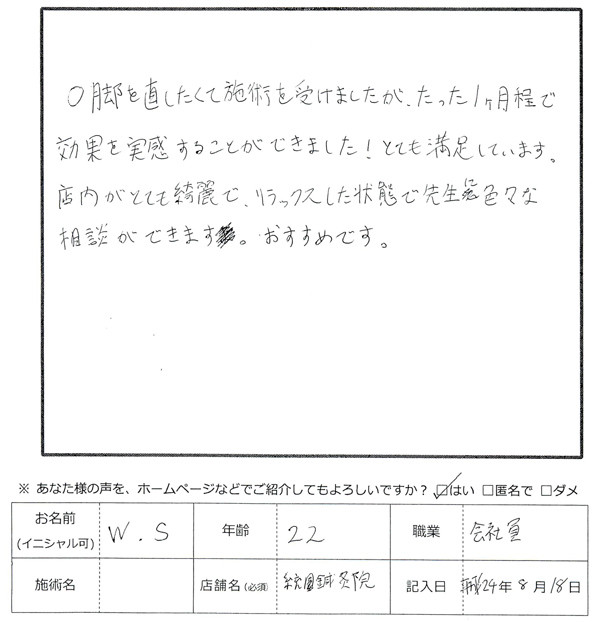 O脚を直したくて施術を受けましたが、たった1ヶ月程で
効果を実感することができました！とても満足しています。
店内がとても綺麗で、リラックスした状態で先生に色々な
相談ができます。おすすめです。
※ あなた様の声を、ホームページなどでご紹介してもよろしいですか？ ☑はい ☐匿名で ☐ダメ
お名前 (イニシャル可) W.S 年齢 22 職業 会社員
施術名 店舗名(必須) 鍼灸院 記入日 24年 8月 18日